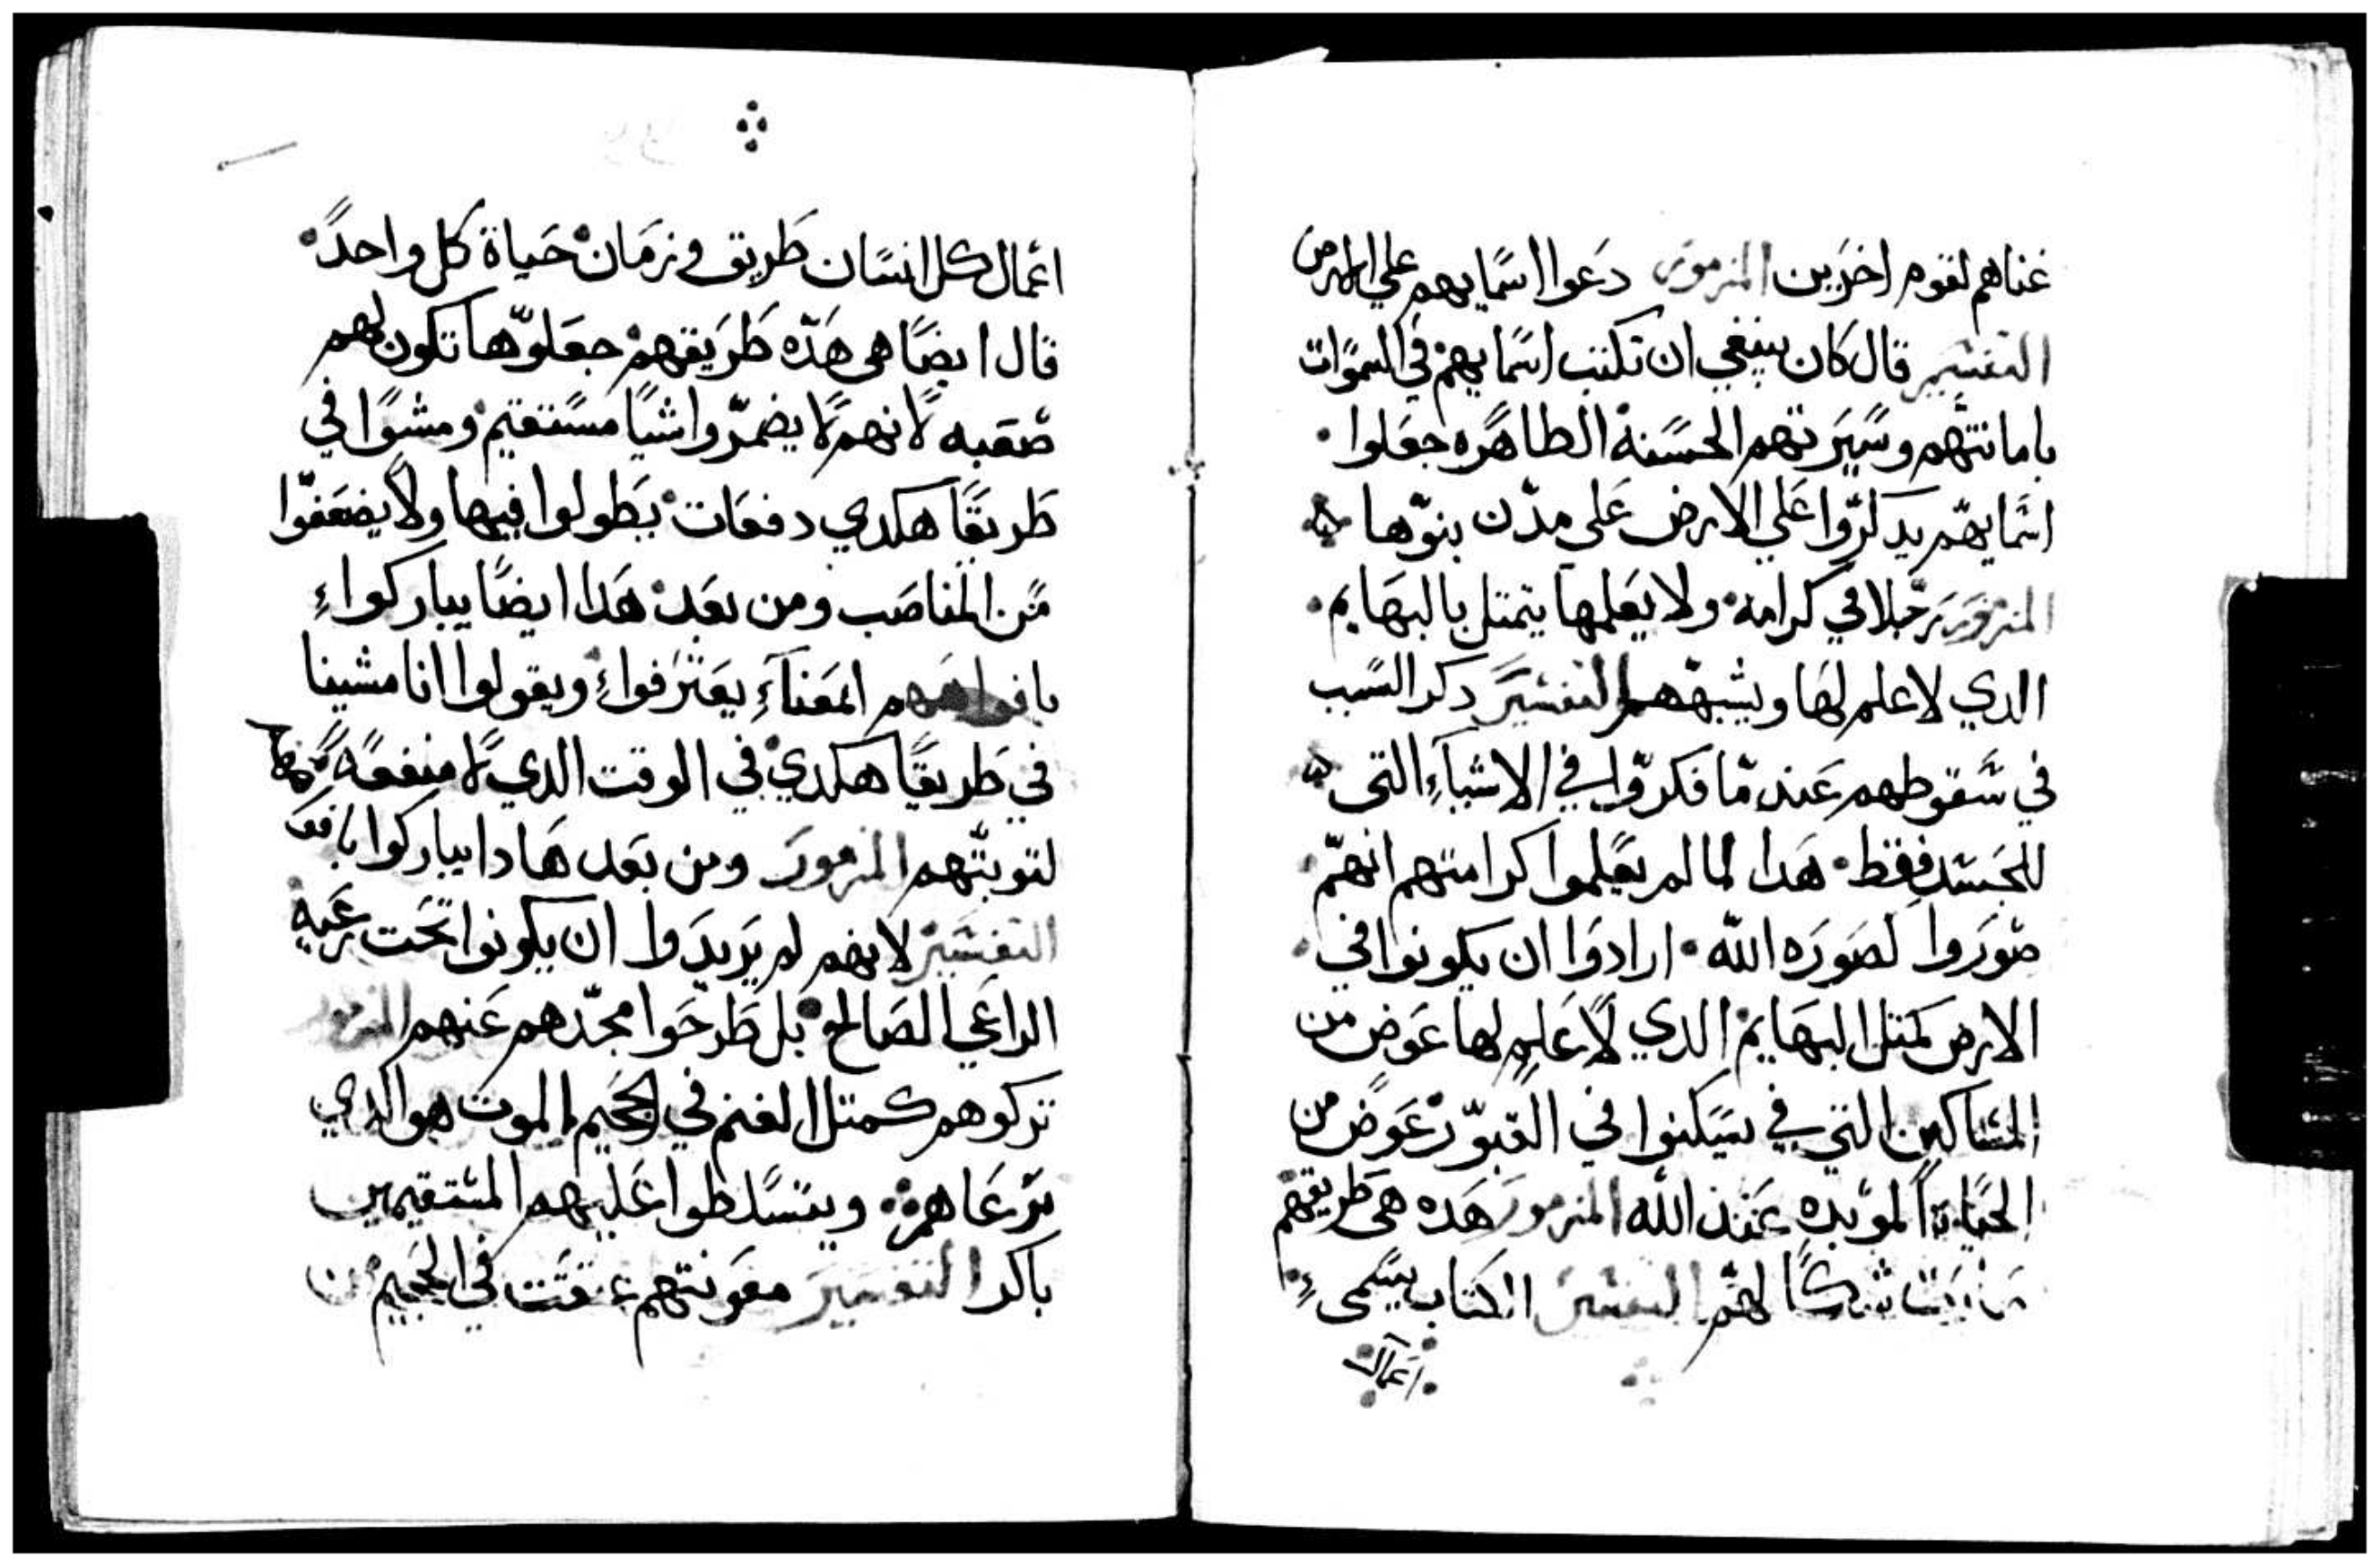 غناهم لقوم اخرين المزمور دعوا اسمايهم علي الارض
التفسير قال كان ينبغي ان تكتب اسمايهم في السموات
بامانتهم وسيرتهم الحسنة الطاهره جعلوا
اسمايهم يدكروا علي الارض علي مدن بنوها
المزمور رجلا في كرامة ولا يعلمها يتمتل بالبهايم
الدي لا علم لها ويشبههم التفسير دكر السبب
في سقوطهم عند ما فكروا في الاشياء التى
للجسد فقط هدا لما لم يعلموا كرامتهم انهم
صوروا لصوره الله ارادوا ان يكونوا في
الارض كمتل البهايم الدي لا علم لها عوض من
المساكين التي في يسكنوا في القبور عوض من
الحياة الموبده عند الله المزمور هده هى طريقهم
شكا لهم التفسير الكتاب يسمى
اعمال
اعمال كل انسان طريق في زمان حياة كل واحد
قال ايضا هى هده طريقهم جعلوها تكون لهم
صعبه لانهم لا يضمروا شيا مستقيم ومشوا في
طريقا هكدي دفعات يطولوا فيها ولا يضعفوا
من المناصب ومن بعد هدا ايضا يباركوا
بافواههم المعنا يعترفوا ويقولوا انا مشينا
في طريقا هكدي في الوقت الدي لا منفعة
لتوبتهم المزمور ومن بعد هادا يباركوا
التفسير لانهم لم يريدوا ان يكونوا تحت رعية
الراعي الصالح بل طرحوا مجدهم عنهم المزمور
تركوهم كمتل الغنم في الجحيم الموت هو الدي
يرعاهم ويتسلطوا عليهم المستقيمين
باكرا التفسير معونتهم عتقت في الجحيم من